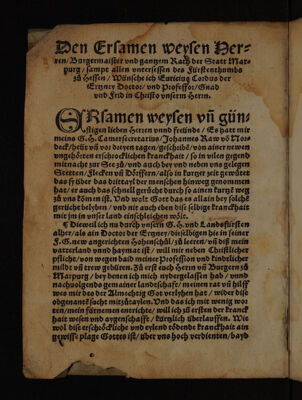 Den Ersamen weysen Her-
ren/Burgermaister vnd gantzem Rath der Statt Mar-
purg/sampt allen vntersessen des Fürstenthumbs
zů Hessen/Wünsche ich Euricius Cordus der
Ertzney Doctor/vnd Professor/Gnad
vnd Frid in Christo vnserm Herrn.
ERsamen weysen vñ gün-
stigen lieben Herren vnnd freünde/Es hatt mir
meins G.H. Camersecretarius/Johannes Raw võ Nor-
deck/heüt vñ vor dreyen tagen/geschribẽ/von ainer newen
vngehörten erschrocklichen kranckhait/so in vilen gegend
mitnacht zur See zů/vnd auch bey vnd neben vns gelegen
Stetten/Flecken vñ Dörffern/also in kurtzer zeit gewütet
das frůher das drittayl der menschen hinweg genommen
hat/er auch das schnell gerücht durch so ainen kurtzẽ weg
zů vns kõmen ist. Vnd wolt Gott das es allain bey solchẽ
gerücht belyben/vnd nit auch eben dise selbige kranckhait
mit jm in vnser land einschleichen wölt.
¶ Dieweil ich nu durch vnsern G.H. vnd Landsfürsten
alher/als ain Doctor der Ertzney/dieselbigen hie in seiner
F.G. new angerichten Hohynschůl/zů leeren/vñ diß mein
vatterland vnnd haymat ist/will mir neben Christlicher
pflicht/von wegen baid meiner Profession vnd kindlicher
mildt vñ trew gebüren. Zů erst euch Herrn vñ Burgern zů
Marpurg/bey denen ich mich nydergelassen hab/vnnd
nachuolgends gemainer landschafft/meinen rat vñ hilff
wes mir des der Almechtig Got verlyhen hat/wider dise
obgenante sucht mitzůtaylen. Vnd das ich mit wenig wor
ten/mein fürnemen entrichte/will ich zů ersten der kranck
hait wesen vnd aygenschafft/kürtzlich überlauffen. Wie
wol dise erschöckliche vnd eylend tödende kranckhait ain
gewisse plage Gottes ist/über vns hoch verdienten/bayd